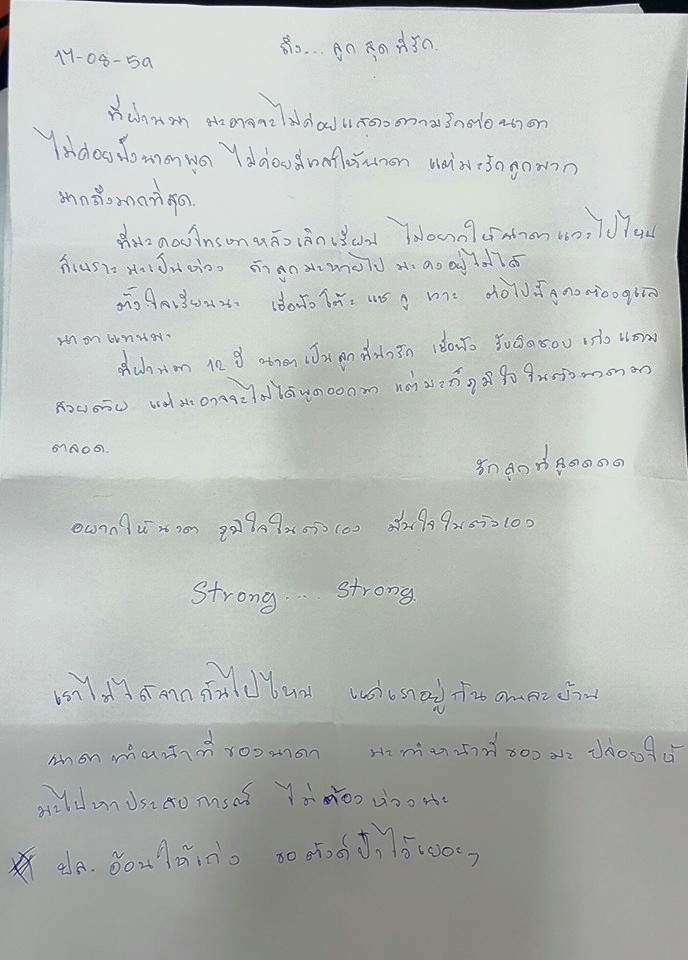 17-08-59
ถึง... ลูกสุดที่รัก.
ที่ผ่านมา มะอาจจะไม่ค่อยแสดงความรักต่อนาดา
ไม่ค่อยฟังนาดาพูด ไม่ค่อยมีเวลาให้นาดา แต่มะรักลูกมาก
มากถึงมากที่สุด.
ที่มะคอยโทรหาหลังเลิกเรียน ไม่อยากให้นาดาแวะไปไหน
ก็เพราะมะเป็นห่วง ถ้าลูกมะหายไป มะคงอยู่ไม่ได้
ตั้งใจเรียนนะ เชื่อฟังโต๊ะ แช กู เาะ ต่อไปนี้กูคงต้องดูแล
นาดาแทนมะ
ที่ผ่านมา 12 ปี นาดาเป็นลูกที่น่ารัก เชื่อฟัง รับผิดชอบ เก่ง แถม
สวยด้วย แต่มะอาจจะไม่ได้พูดออกมา แต่มะก็ภูมิใจในตัวนาดามา
ตลอด.
รักลูกที่สูดดดด
อยากให้นาดา ภูมิใจในตัวเอง มั่นใจในตัวเอง
Strong.... Strong.
เราไม่ได้จากกันไปไหน แค่เราอยู่กันคนละบ้าน
นาดาทำหน้าที่ของนาดา มะทำหน้าที่ของมะ ปล่อยให้
มะไปหาประสบการณ์ ไม่ต้องห่วงนะ
ปล. อ้อนให้เก่ง ขอตังค์ป๋าไว้เยอะๆ